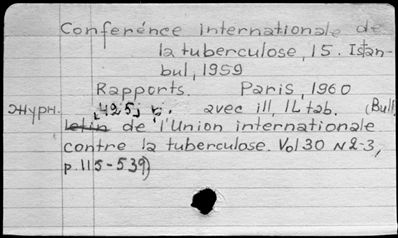 Conferénce internationale de
la tuberculose, 15. Istan-
bul, 1959
Rapports. Paris, 1960
Журн. 425, с. avec ill, IL tab. (Bull
letin de l'Union internationale
contre la tuberculose. Vol 30 N 2-3,
p. 115-539)